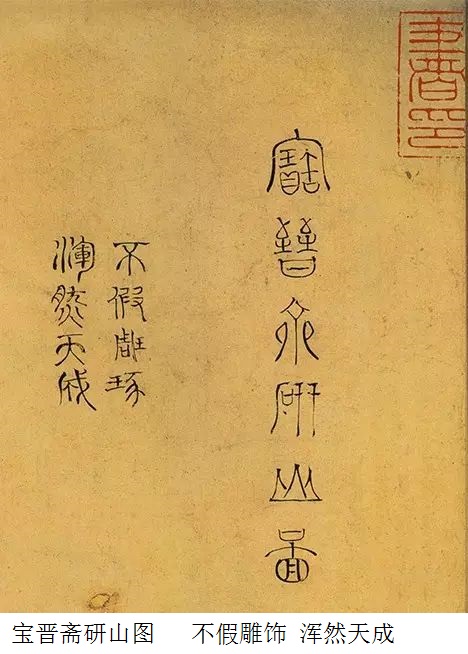 寶晉齋研山圖
不假雕琢
渾然天成
宝晋斋研山图 不假雕饰 浑然天成